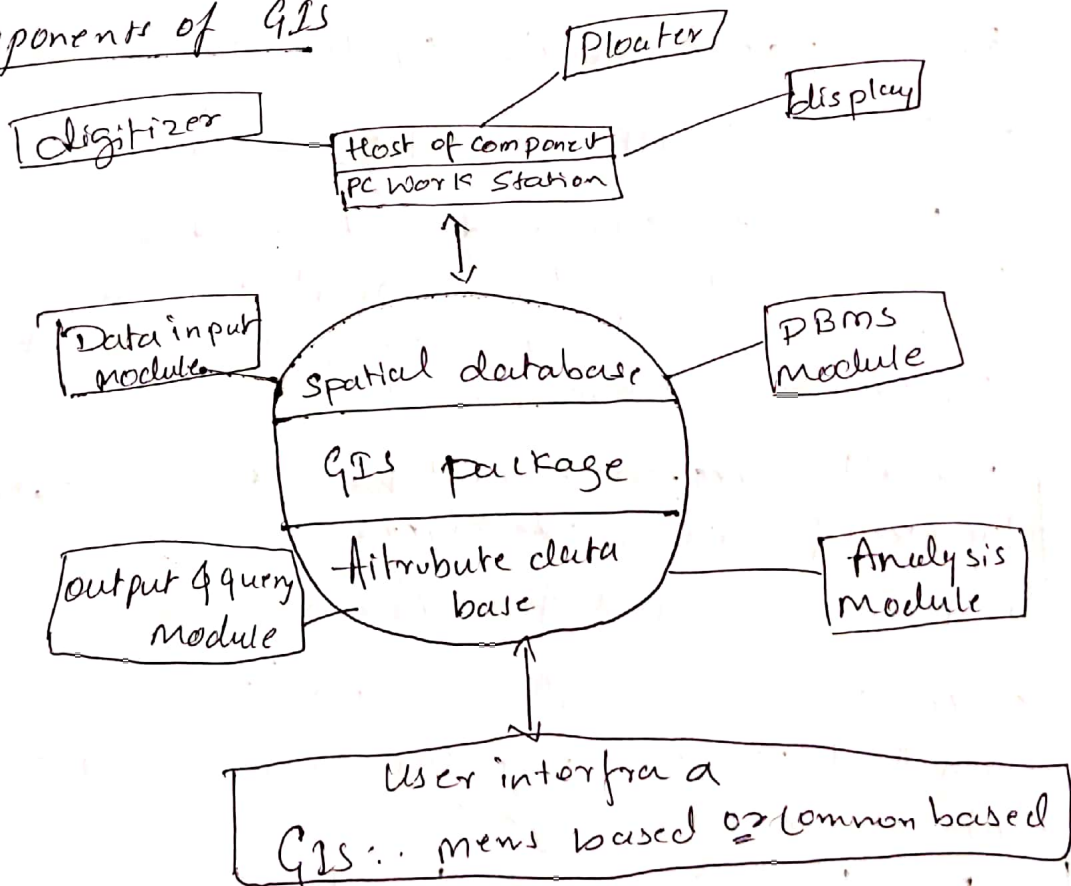 ponents of GIS
Ploater
display
digitizer
Host of component
PC Work Station
Data input
Module
spatial database
DBMS
Module
GIS package
Aitrubute data
base
output & query
Module
Analysis
Module
User interfra a
GIS:. mens based or common based